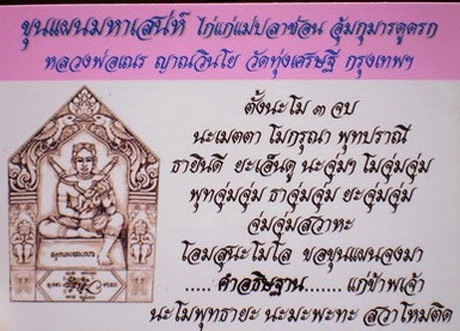 ขุนแผนมหาเสน่ห์ ไก่แก่แม่ปลาช่อน อุ้มกุมารดูดรก
หลวงพ่อเณร ญาณวินโย วัดทุ่งเศรษฐี กรุงเทพฯ
ตั้งนะโม ๓ จบ
นะเมตตา โมกรุณา พุทปราณี
ธายินดี ยะเอ็นดู นะจุ่มๆ โมจุ่มจุ่ม
พุทจุ่มจุ่ม ธาจุ่มจุ่ม ยะจุ่มจุ่ม
จุ่มจุ่มสวาหะ
โอมสุนะโมโล ขอขุนแผนจงมา
.....คำอธิษฐาน.......แก่ข้าพเจ้า
นะโมพุทธายะ นะมะพะทะ สวาโหมติด